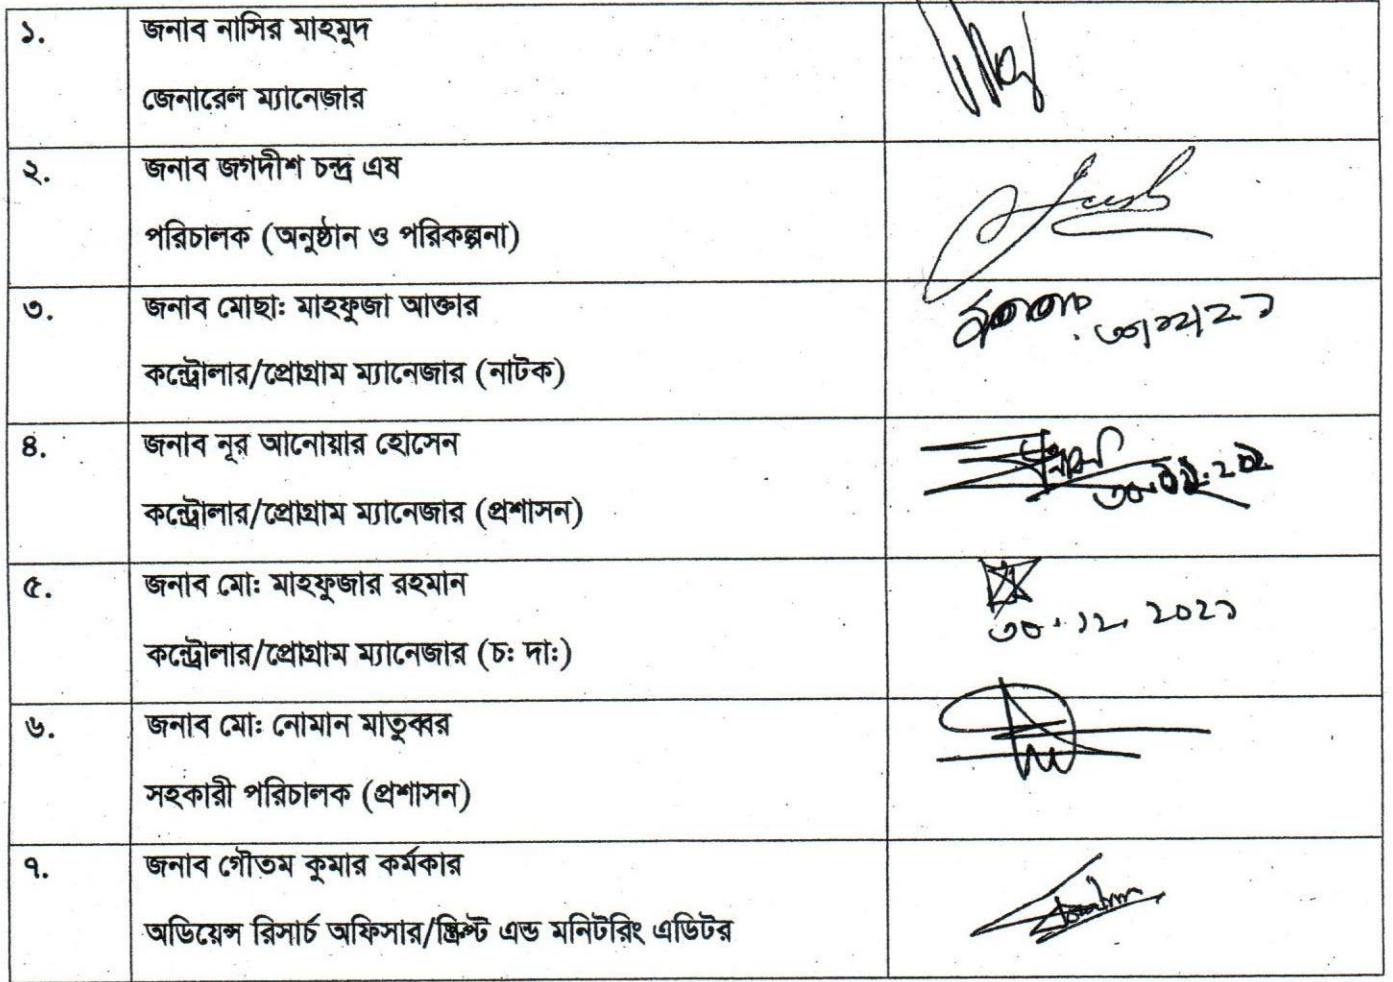 ১. জনাব নাসির মাহমুদ
জেনারেল ম্যানেজার
২. জনাব জগদীশ চন্দ্র এষ
পরিচালক (অনুষ্ঠান ও পরিকল্পনা)
৩. জনাব মোছা: মাহফুজা আক্তার
কন্ট্রোলার/প্রোগ্রাম ম্যানেজার (নাটক)
৪. জনাব নূর আনোয়ার হোসেন
কন্ট্রোলার/প্রোগ্রাম ম্যানেজার (প্রশাসন)
৫. জনাব মো: মাহফুজার রহমান
৩০.১২.২০২১
কন্ট্রোলার/প্রোগ্রাম ম্যানেজার (চ: দা:)
৬. জনাব মো: নোমান মাতুব্বর
সহকারী পরিচালক (প্রশাসন)
৭. জনাব গৌতম কুমার কর্মকার
অডিয়েন্স রিসার্চ অফিসার/স্ক্রিপ্ট এন্ড মনিটরিং এডিটর